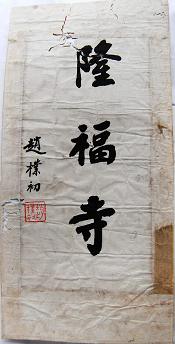 隆福寺
趙樸初